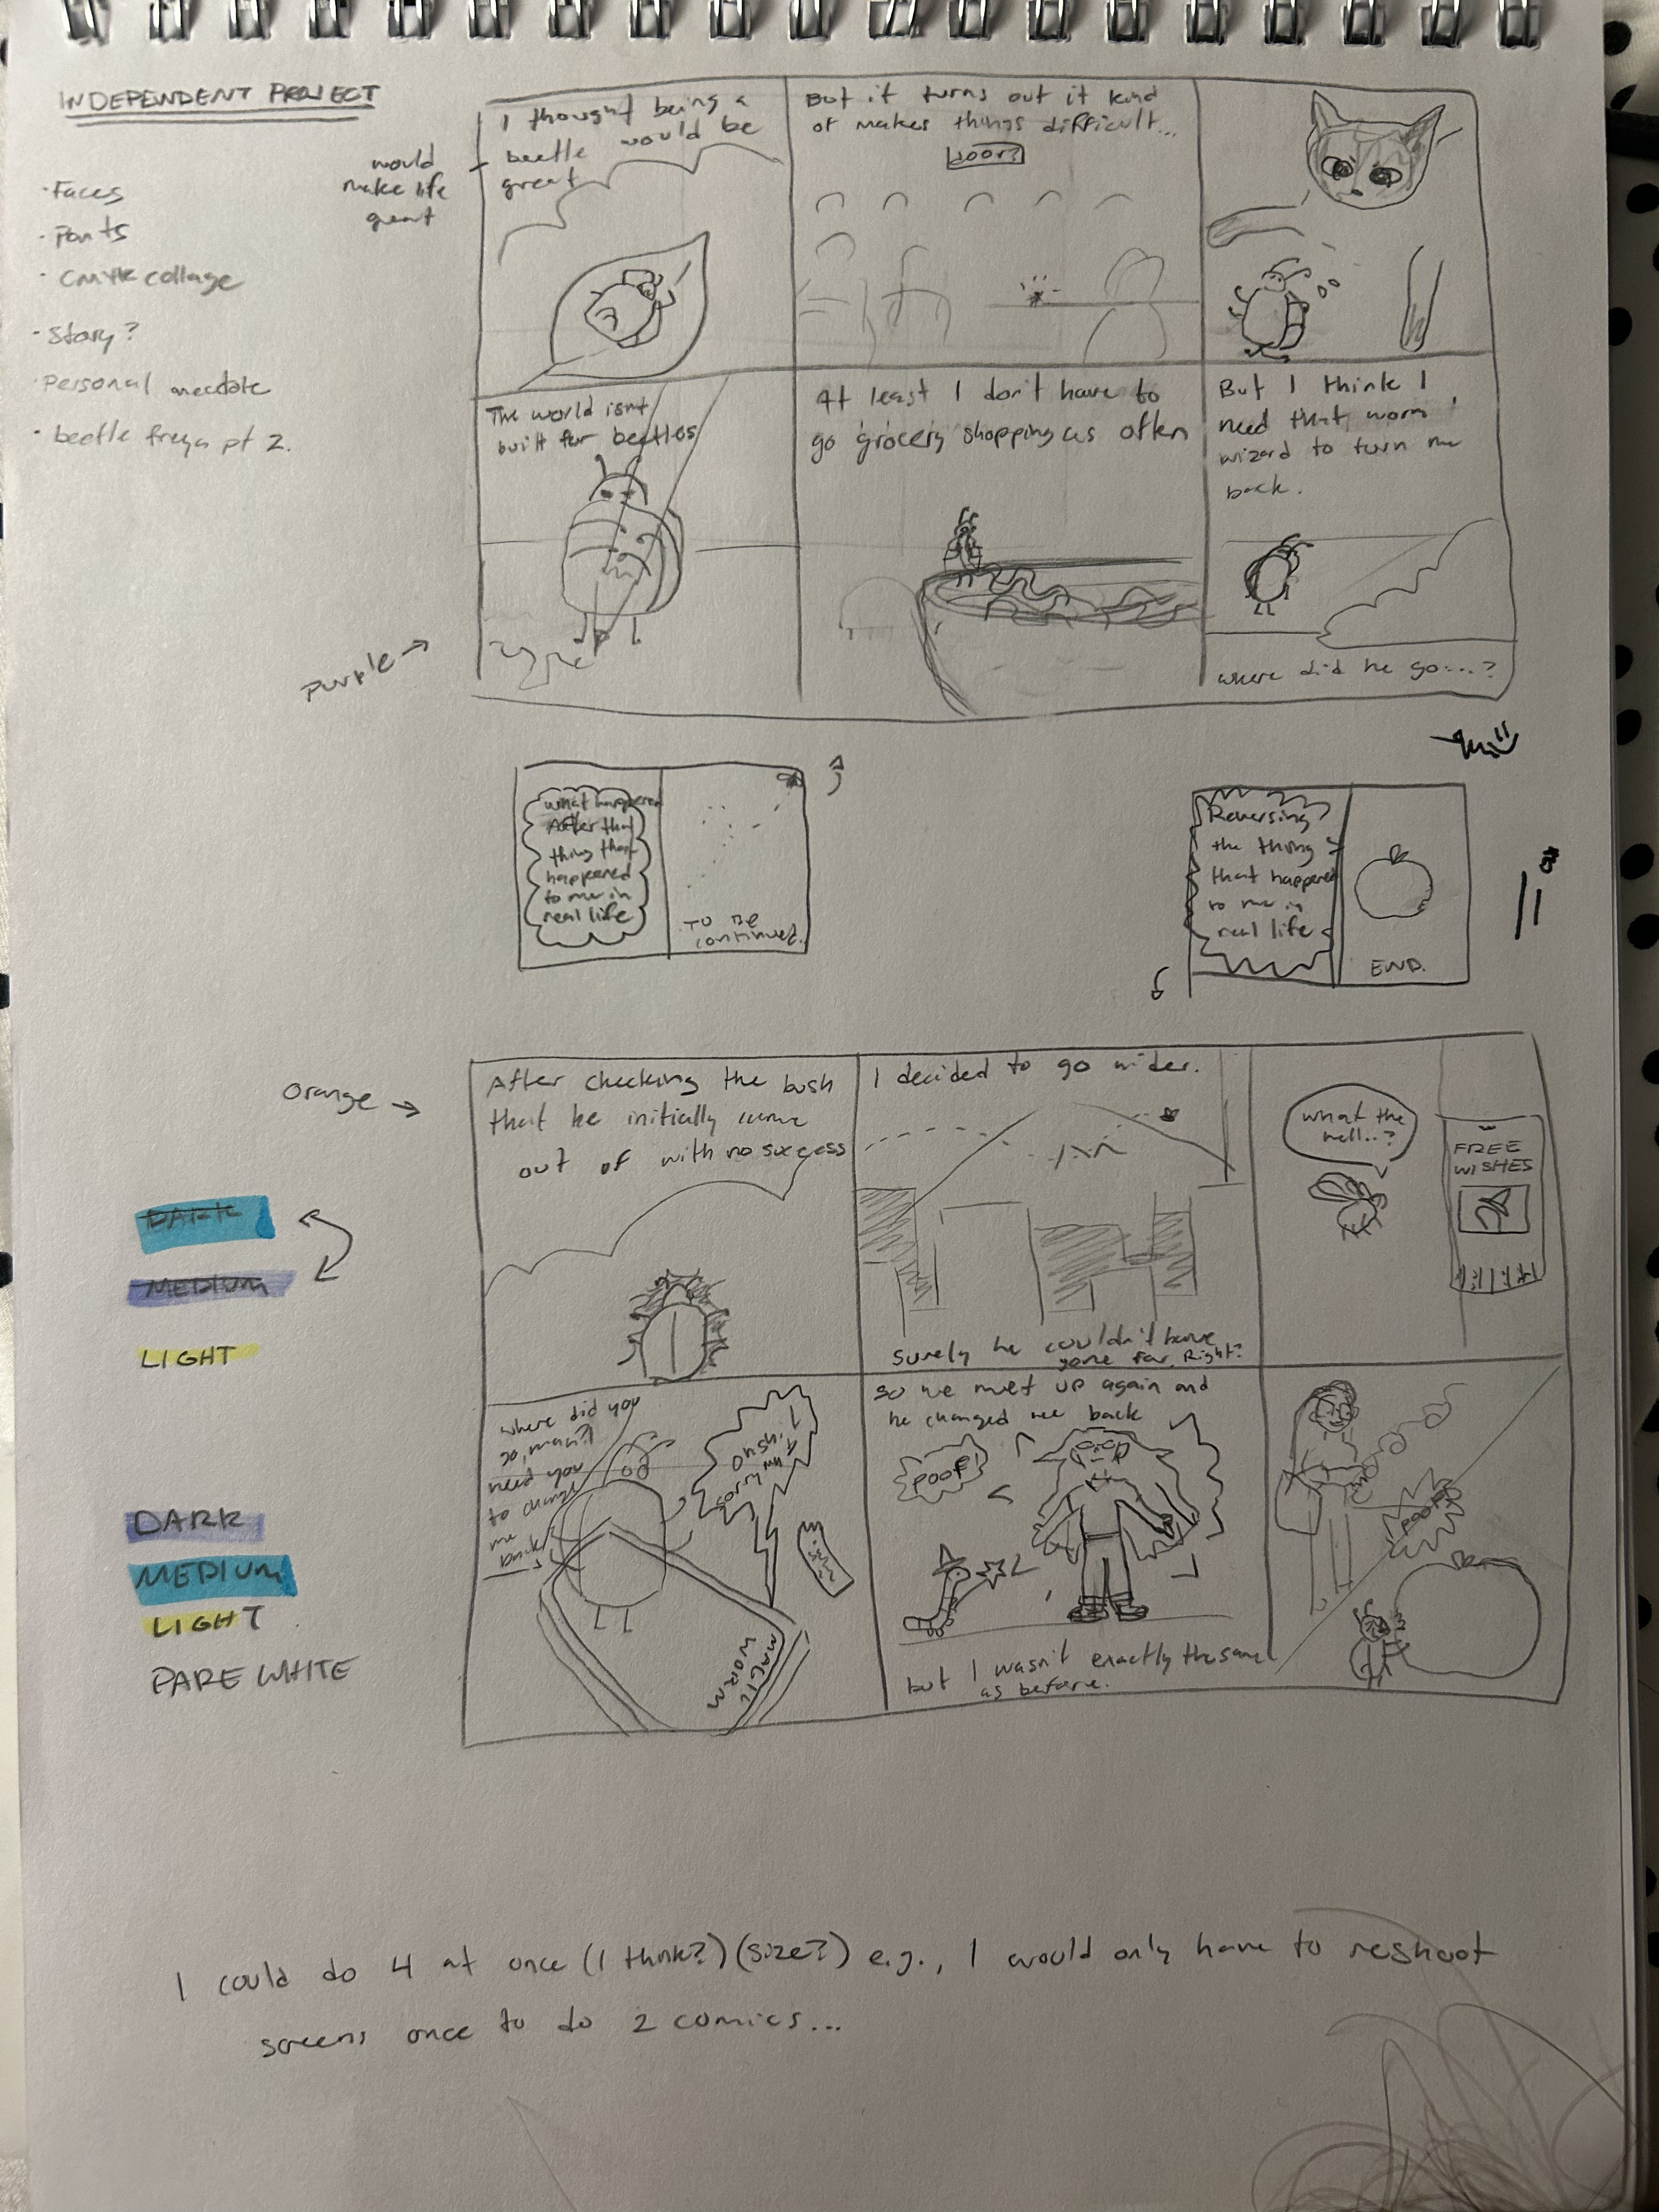 INDEPENDENT PROJECT
· Faces
· Pants
· CMYK collage
· Story?
· personal anecdote
· beetle freya pt 2.
would
make life
great
I thought being a
beetle would be
great
But it turns out it kind
of makes things difficult...
door?
The world isnt
built for beetles
At least I don't have to
go grocery shopping as often
But I think I
need that worm
wizard to turn me
back.
where did he go....?
purple →
what happened
After that
thing that
happened
to me in
real life
TO BE
continued.
Reversing
the thing
that happened
to me in
real life
END.
orange →
After checking the bush
that he initially came
out of with no success
I decided to go wider.
Surely he couldn't have
gone far, Right?
what the
hell..?
FREE
WISHES
where did you
go, man? I
need you
to change
me
back!
MAGIC
WORM
So we met up again and
he changed me back
POOF!
but I wasn't exactly the same
as before.
POOF!
DARK
MEDIUM
LIGHT
DARK
MEDIUM
LIGHT
PARE WHITE
I could do 4 at once (I think?) (size?) e.g., I would only have to reshoot
screens once to do 2 comics...